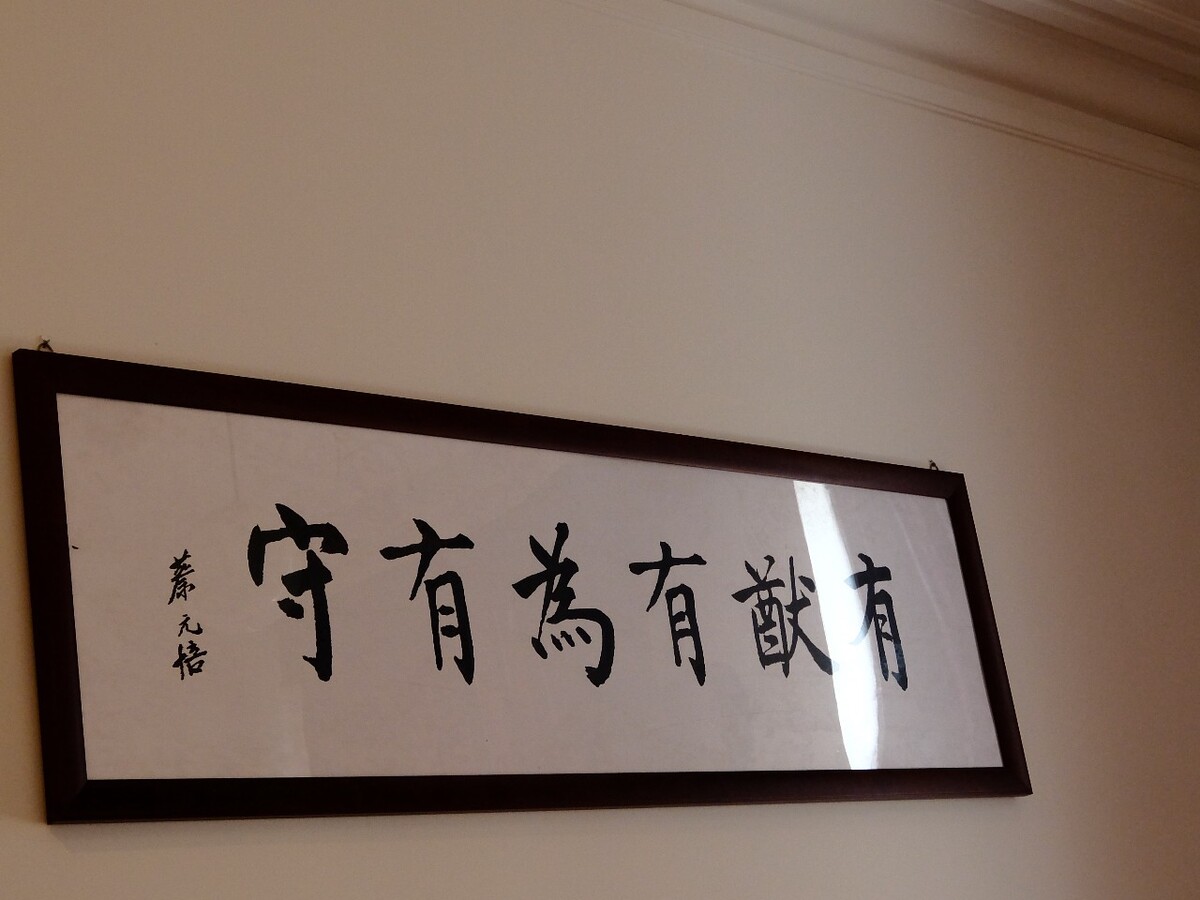 有猷有為有守
蔡元培